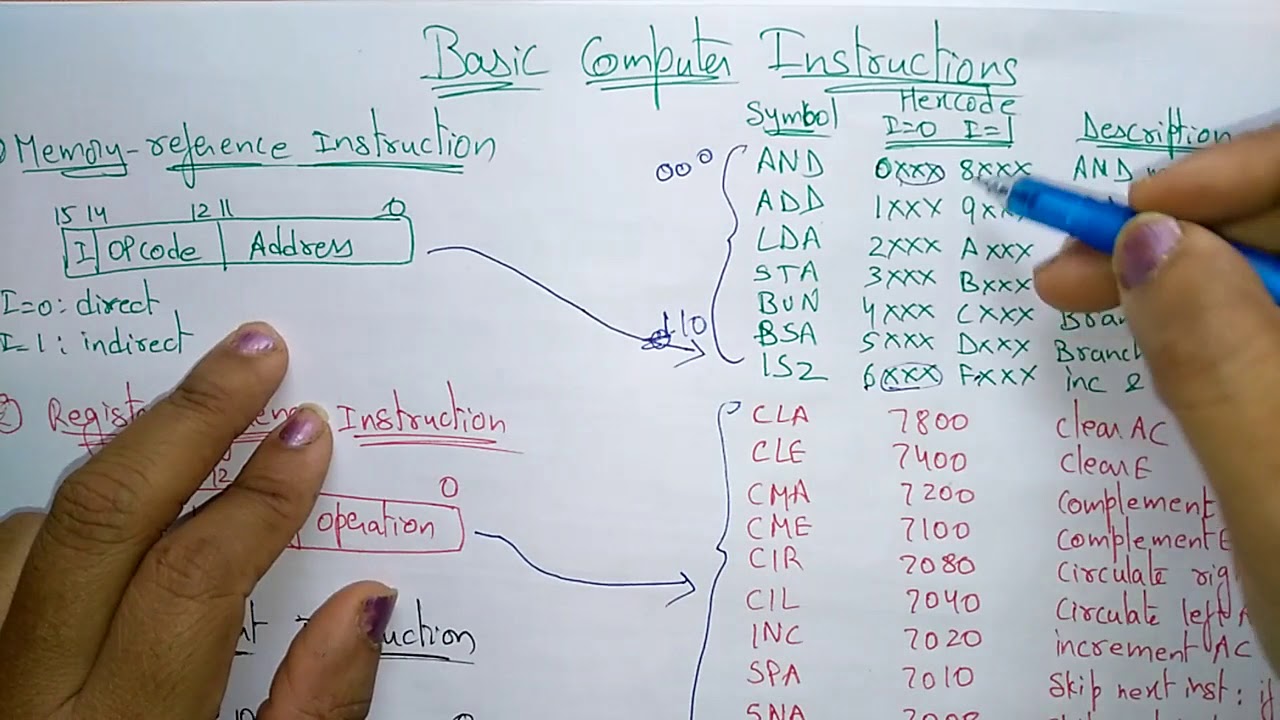 Basic Computer Instructions
Memory-reference Instruction
15 14 12 11 0
I Opcode Address
I=0: direct
I=1: indirect
② Instruction
12
0
operation
0
Symbol Hexcode Description
I=0 I=1
000
110
AND 0xxx 8xxx AND
ADD 1xxx
LDA 2xxx Axxx
STA 3xxx Bxxx
BUN 4xxx Cxxx
BSA 5xxx Dxxx Branch
ISZ 6xxx Fxxx inc &
CLA 7800 Clear AC
CLE 7400 Clear E
CMA 7200 Complement
CME 7100 Complement E
CIR 7080 Circulate
CIL 7040 Circulate left
INC 7020 increment AC
SPA 7010 Skip next inst: if
SNA